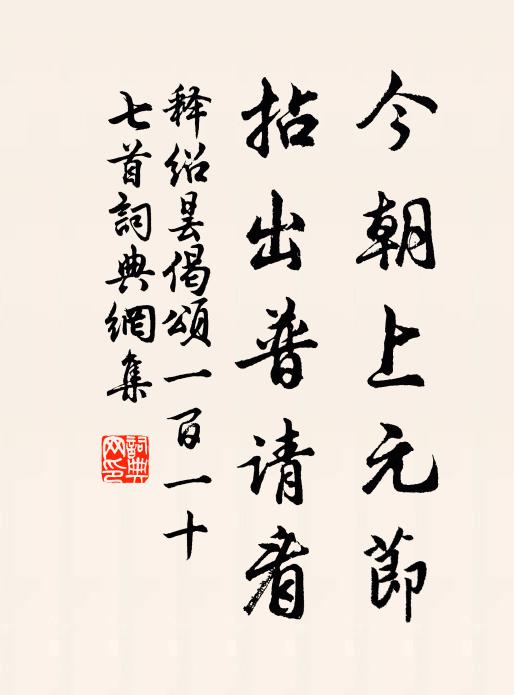 今朝上元節
拈出普请看
释绍昙偈頌一百一十
七首詞典網集
詞典网印